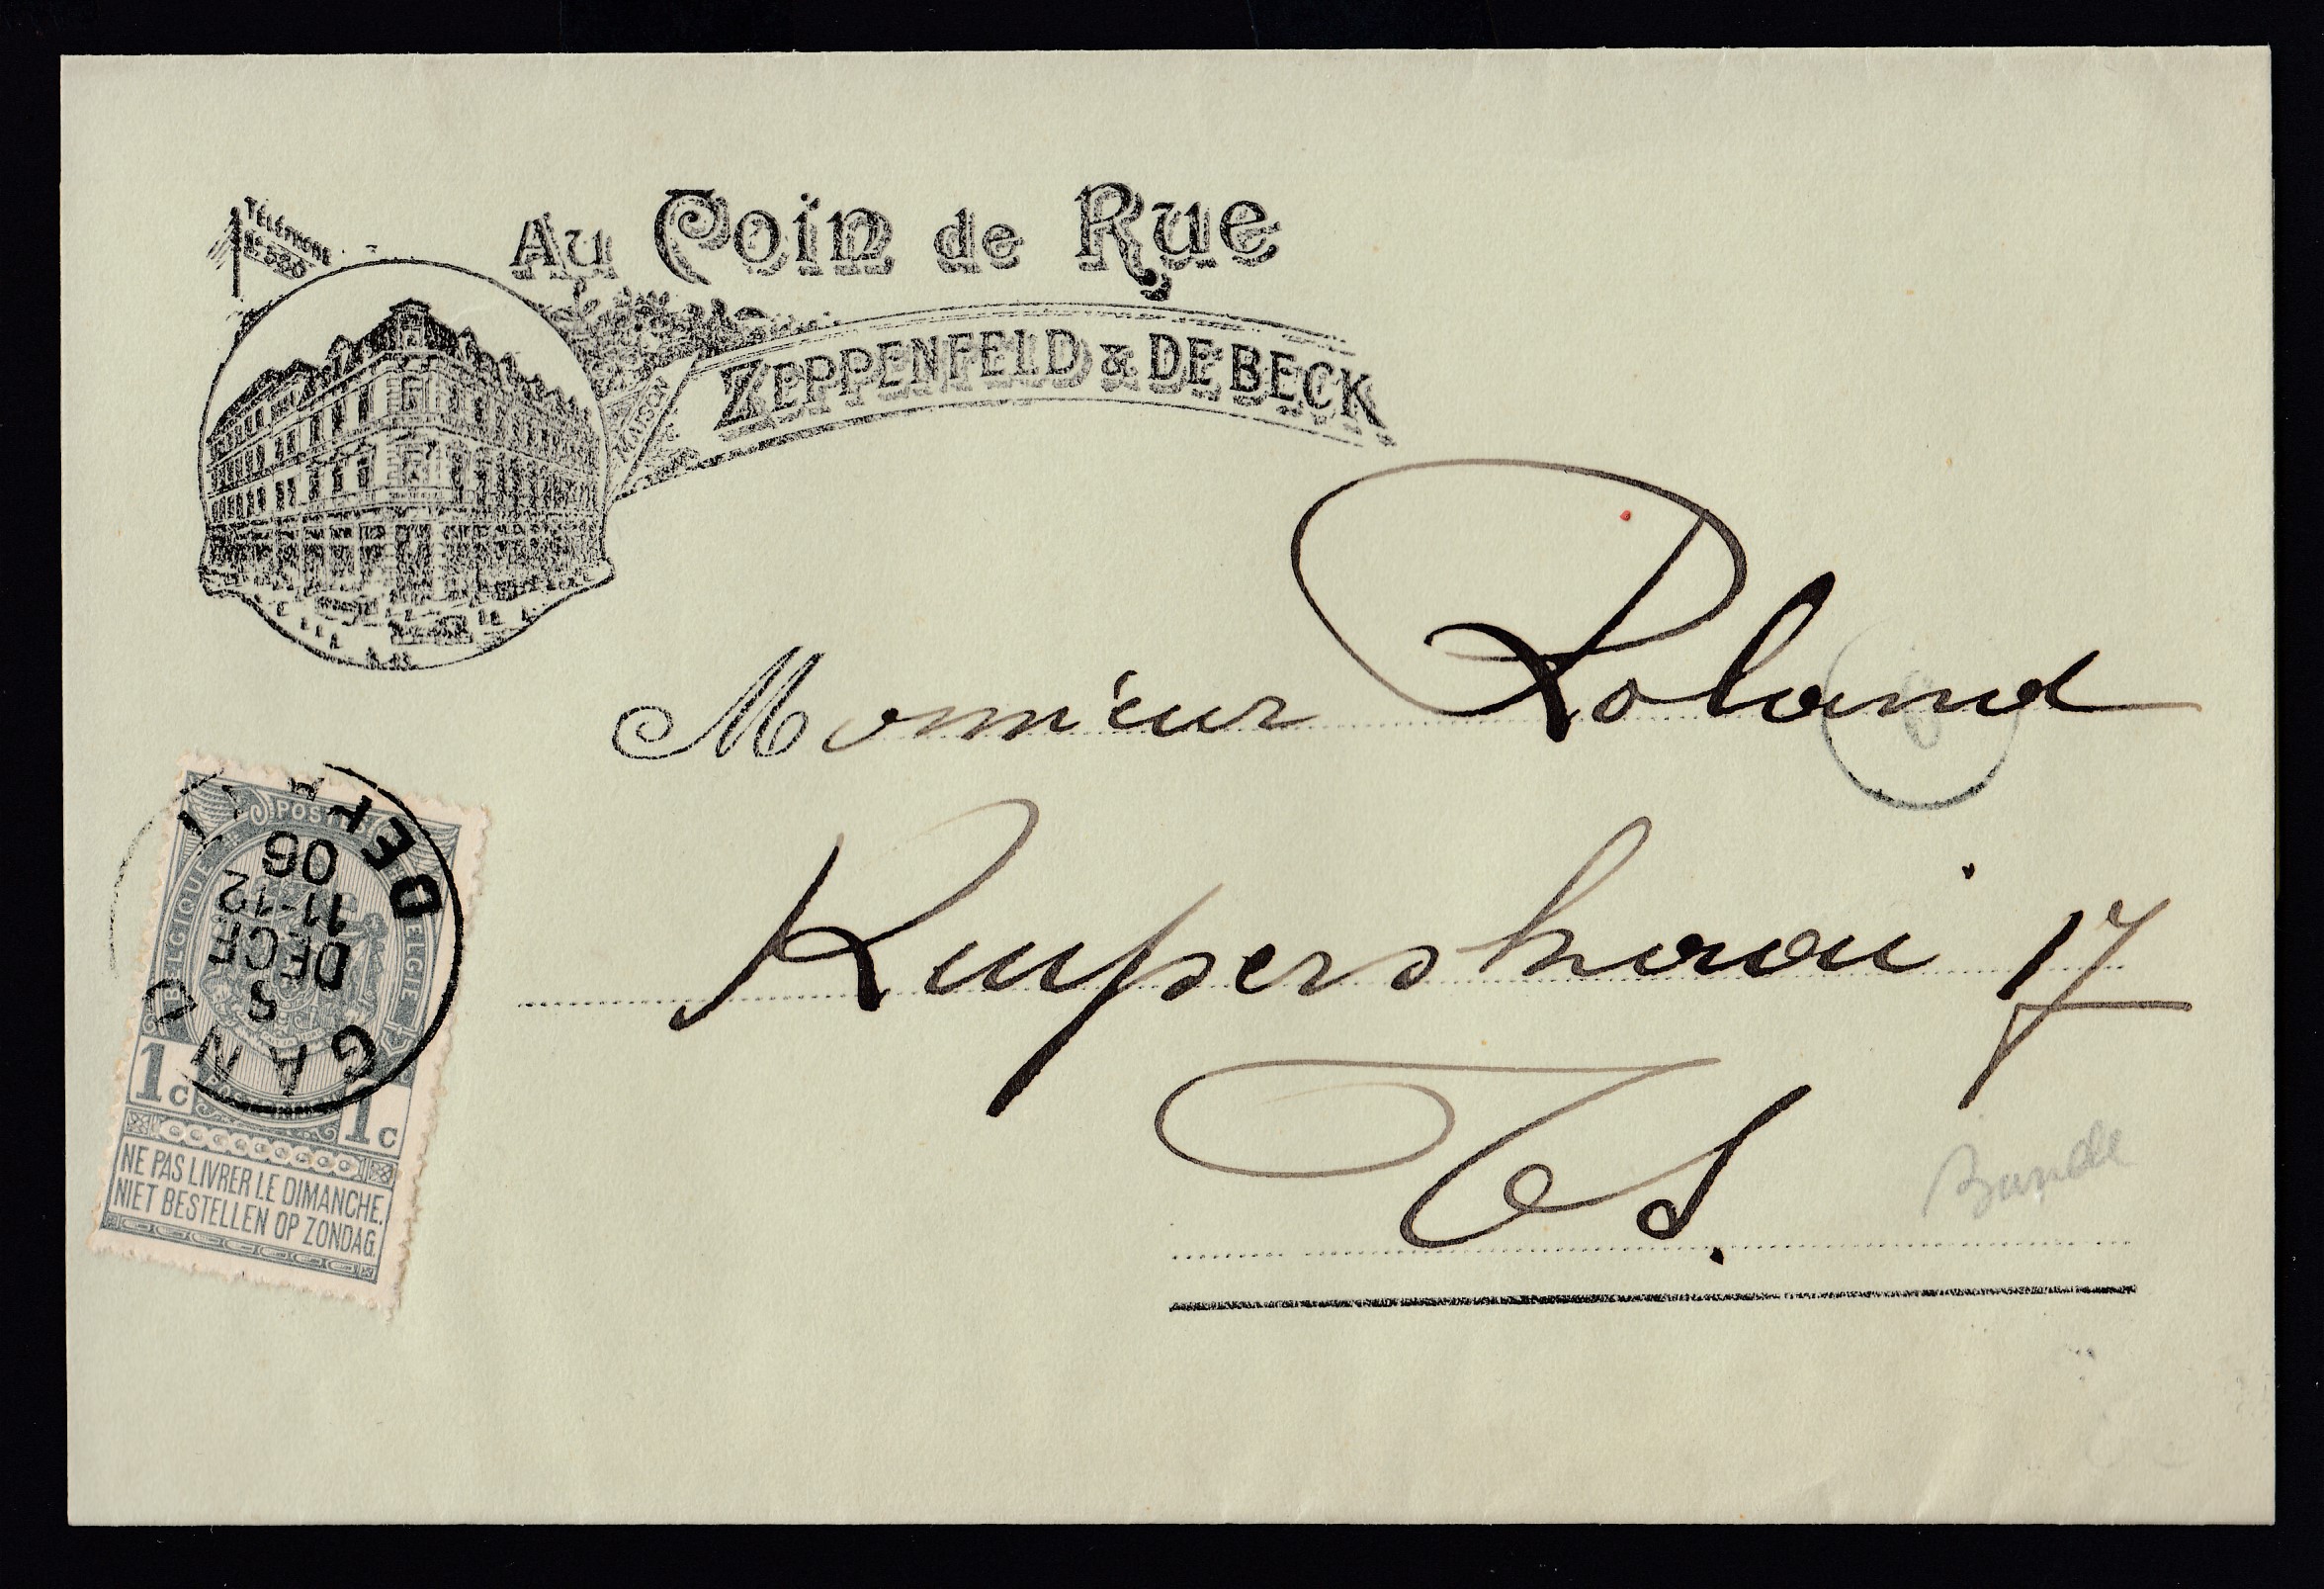 TÉLÉPHONE
No 580
Au Coin de Rue
MAISON
ZEPPENFELD & DE BECK
Monsieur Roland
Kuipershaai 17
POSTES
BELGIQUE
BELGIE
1c
1c
NE PAS LIVRER LE DIMANCHE.
NIET BESTELLEN OP ZONDAG.
GAND
8
DECE
11-12
06
DEPART
Bande